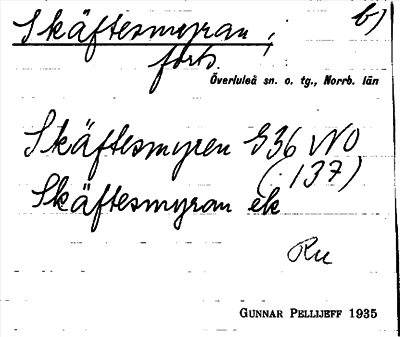 Skäftesmyran, b)
forts.
Överluleå sn. o. tg., Norrb. län
Skäftesmyren G36 NO
(137)
Skäftesmyran ek
Ru
GUNNAR PELLIJEFF 1935